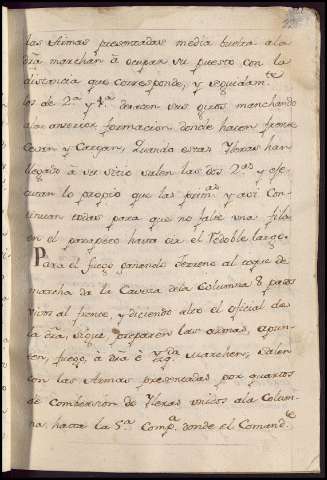 las Armas presentadas media buelta a la
dra marchan à ocupar su puesto con la
distancia que corresponde, y seguidam.te
los de 2.a y 4.a daran sus giros marchando
a la anterior formacion donde hacen frente
Cevan y Cargan, Quando estas Yleras han
llegado à su sitio salen las dos 2.as y exe-
cutan lo propio que las prim.as y asi Con-
tinuan todas para que no falte una fila
en el parapeto hasta oir el Redoble largo.
Para el fuego ganando terreno al toque de
marcha da la Caveza de la Columna 8 pasos
vivos al frente y diciendo alto el oficial de
la dra, sigue, preparen las armas, apun-
ten, fuego, à dra è Yzq.da marchen, salen
con las Armas presentadas por quartos
de Combersion de Yleras unidos a la Colum-
na hasta la 5.a Comp.a donde el Comand.te